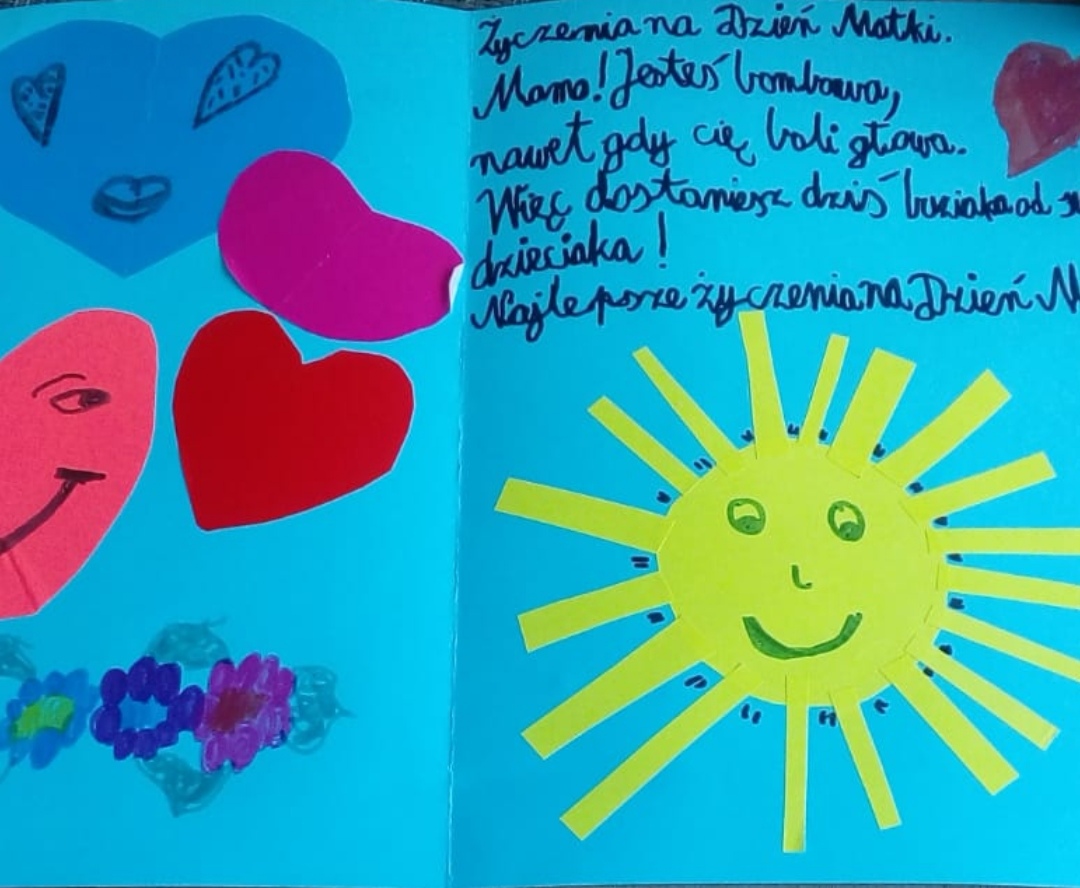 Życzenia na Dzień Matki.
Mamo! Jesteś bombowa,
nawet gdy cię boli głowa.
Więc dostaniesz dziś buziaka od
dzieciaka!
Najlepsze życzenia na Dzień M